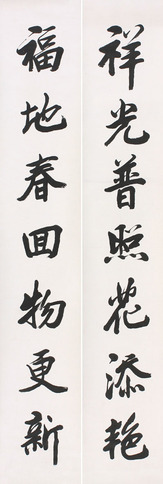 祥光普照花添艳
福地春回物更新